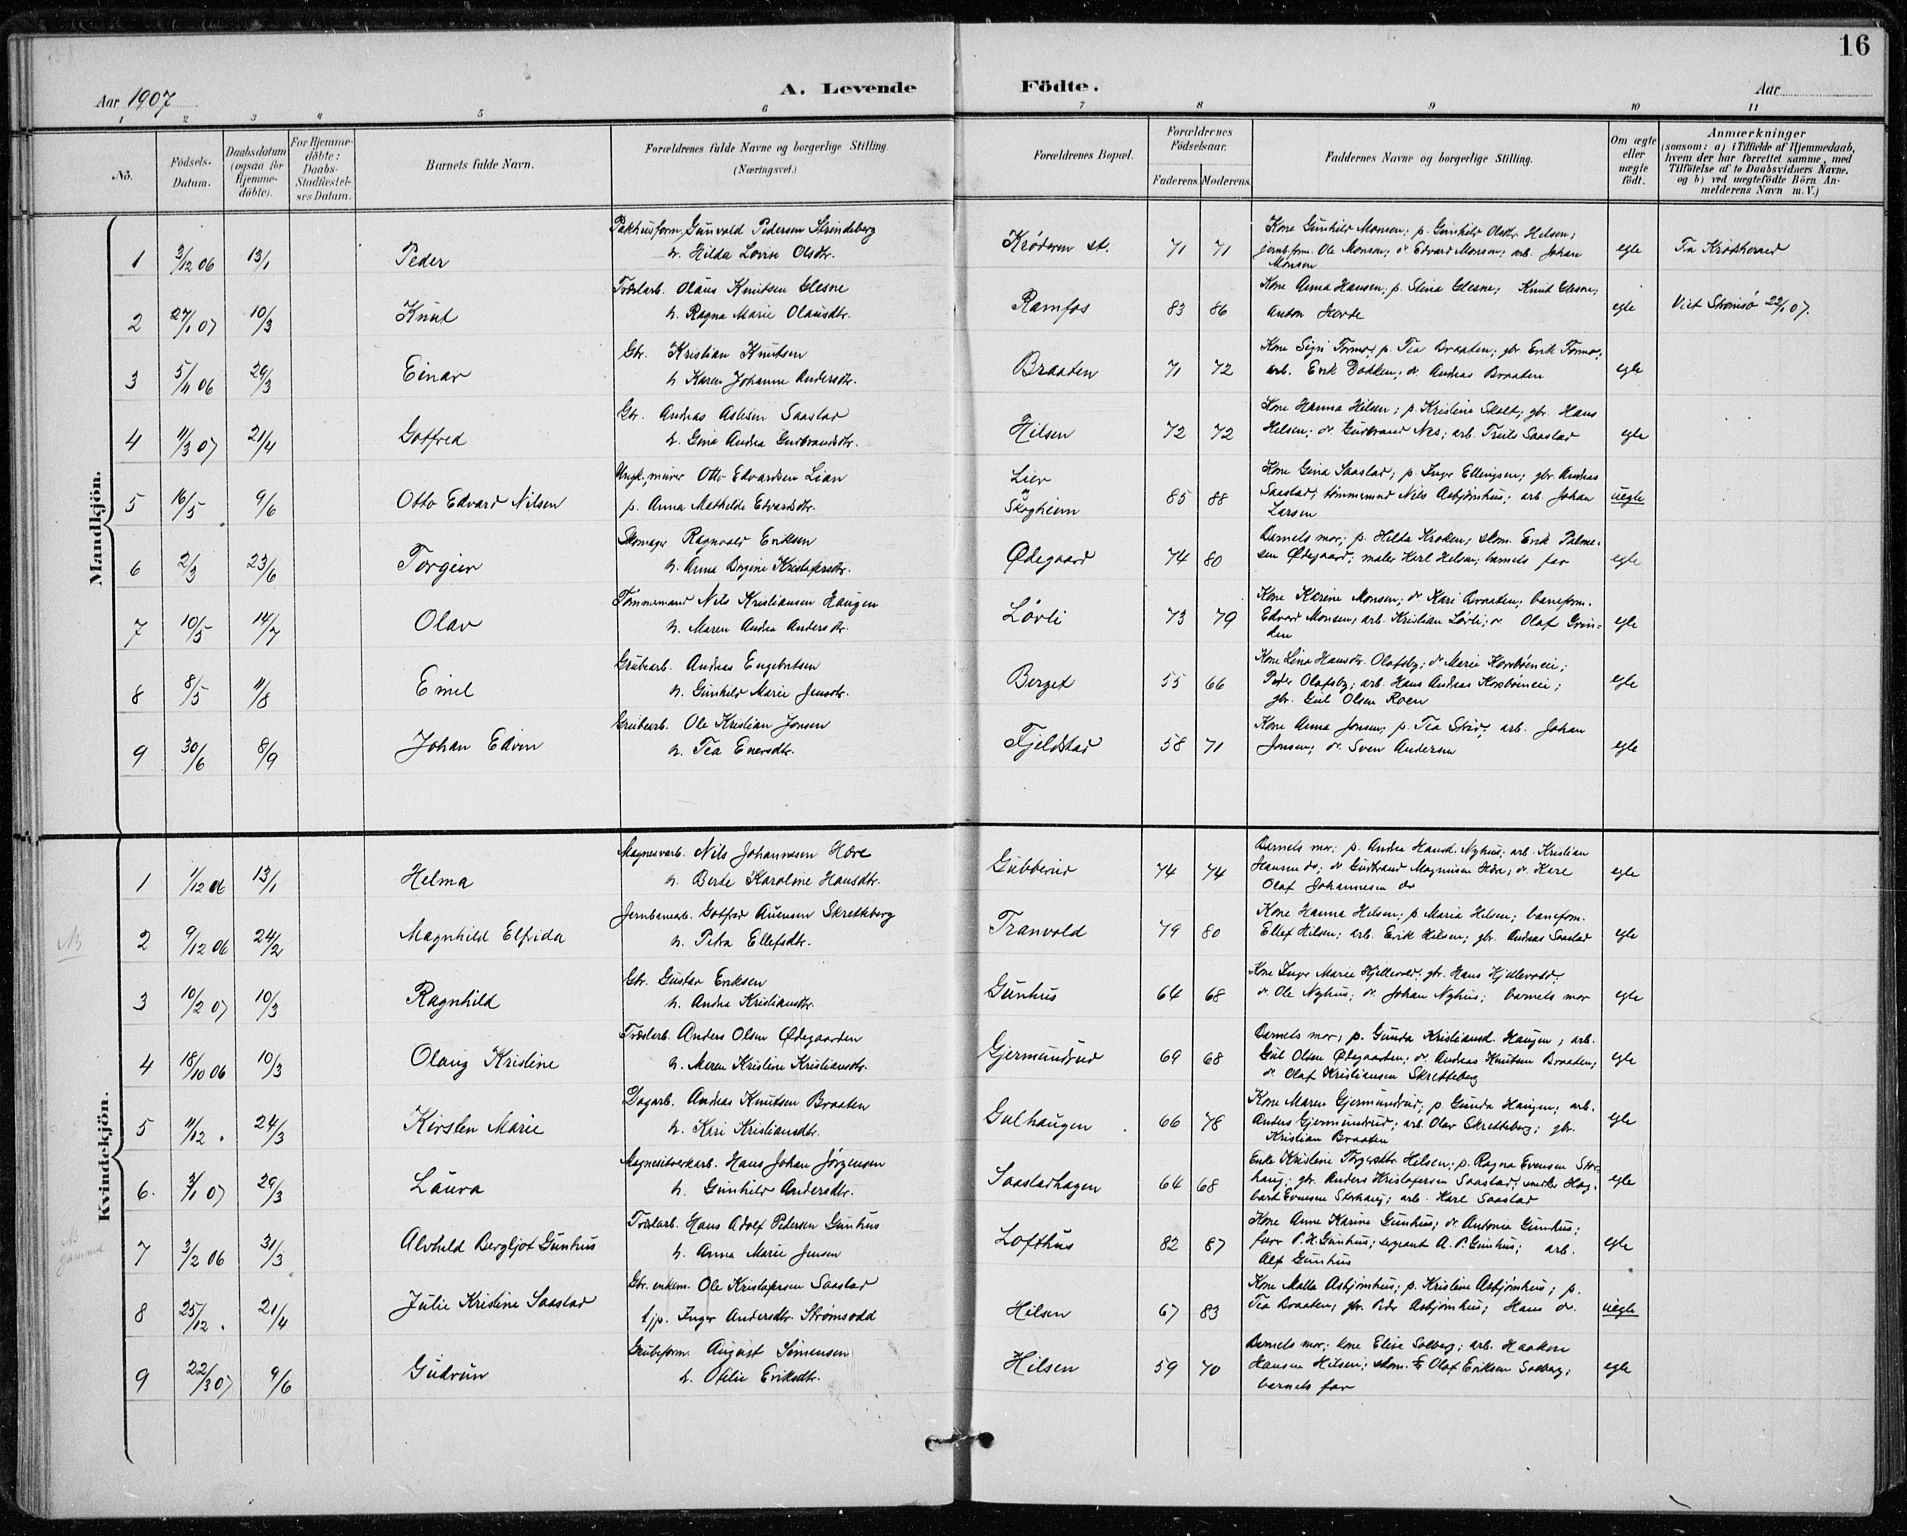 16
Aar 1907
A. Levende Födte.
Aar
1 2 3 4 5 6 7 8 9 10 11
No.
Födsels-Datum.
Daabsdatum (ogsaa för Hjemme-döbte).
For Hjemme-döbte: Daabs-Stadfæstel-ses Datum.
Barnets fulde Navn.
Forældrenes fulde Navne og borgerlige Stilling. (Næringsvei.)
Forældrenes Bopæl.
Forældrenes Födselsaar.
Faderens. Moderens.
Faddernes Navne og borgerlige Stilling.
Om ægte eller uægte födt.
Anmærkninger (saasom: a) i Tilfælde af Hjemmedaab, hvem der har forrettet samme, med Tilföielse af to Daabsvidners Navne, og b) ved uægtefödte Börn An-melderens Navn m. V.)
Mandkjön.
1 3/12 06 13/1 Peder Pakhusform. Gunvald Pedersen Strindeberg
h. Hilda Lovise Olsdtr. Krøderen st. 71 71 Kone Gunhild Monsen; p. Gunhild Olsdtr. Hilsen;
jernb.form. Ole Monsen; do Edvard Monsen; arb. Johan
Monsen egte Fra Krødsherred
2 27/1 07 10/3 Knut Træslarb. Olaus Knutsen Glesne
h. Ragna Marie Olausdtr. Ramfos 83 86 Kone Anna Hansen; p. Stina Glesne; Knut Glesne;
Anton Horde egte Viet Strømsø 22/1 07.
3 5/11 06 29/3 Einar Gbr. Kristian Knutsen
h. Karen Johanne Andersdtr. Braaten 71 72 Kone Sigri Formo; p. Tea Braaten; gbr. Erik Formo;
arb. Erik Dokken; do Andreas Braaten egte
4 11/3 07 21/4 Gotfred Gbr. Andreas Aslesen Saastad
h. Gina Andrea Gudbrandsdtr. Hilsen 72 72 Kone Hanna Hilsen; p. Kristine Skalt; gbr. Hans
Hilsen; do Gudbrand Nes; arb. Truls Saastad egte
5 16/5 9/6 Otto Edvard Nilsen Ungk., murer Otto Edvardsen Lian
p. Anna Mathilde Edvardsdtr. Lier
Skogheim 85 88 Kone Gina Saastad; p. Inger Ellingsen; gbr. Andreas
Saastad; tømmermd Nils Asbjørnhus; arb. Johan
Larsen uegte
6 2/3 23/6 Torgeir Skomager Ragnvald Eriksen
h. Anna Birgine Kristofersdtr. Ødegaard 74 80 Barnets mor; p. Hilda Kroken; skom. Erik Palme-
sen Ødegaard; maler Karl Hilsen; barnets far egte
7 10/5 14/7 Olav Tømmermand Nils Kristiansen Haugen
h. Maren Andrea Andersdtr. Løvli 73 79 Kone Karine Monsen; do Kari Braaten; baneform.
Edvard Monsen; arb. Kristian Løvli; do Olaf Grin-
den egte
8 8/5 11/8 Emil Grubearb. Andreas Engebretsen
h. Gunhild Marie Jensdtr. Berget 55 66 Kone Lina Hansdtr. Olafsby; do Marie Korsbøneie;
Peder Olafsby; arb. Hans Andreas Korsbøneie;
gbr. Gul Olsen Roen egte
9 30/6 8/9 Johan Edvin Grubearb. Ole Kristian Jonsen
h. Tea Eversdtr. Fjeldstad 58 71 Kone Anna Jonsen; p. Tea Strid; arb. Johan
Jonsen; do Sven Andersen egte
Kvindekjön.
1 1/12 06 13/1 Helma Magnesvarb. Nils Johannesen Høre
h. Berte Karoline Hansdtr. Gubberud 74 74 Barnets mor; p. Andrea Hansd. Nyhus; arb. Kristian
Hansen do; do Gudbrand Magnusen Høre; do Kare
Olaf Johannesen do egte
2 9/12 06 24/2 Magnhild Elfrida Jernbanearb. Gotfred Auensen Skretteberg
h. Petra Ellefsdtr. Tranvold 79 80 Kone Hanna Hilsen; p. Maria Hilsen; baneform.
Ellef Hilsen; arb. Erik Hilsen; gbr. Andreas Saastad egte
3 10/2 07 10/3 Ragnhild Gbr. Gustav Eriksen
h. Andrea Kristiansdtr. Gunhus 64 68 Kone Inger Marie Hjellevold; gbr. Hans Hjellevold;
do Ole Nyhus; do Johan Nyhus; barnets mor egte
4 18/10 06 10/3 Olaug Kristine Træslarb. Anders Olsen Ødegaarden
h. Maren Kristine Kristiansdtr. Gjermundrud 69 68 Barnets mor; p. Gunda Kristiansd. Haugen; arb.
Gul Olsen Ødegaarden; do Andreas Knutsen Braaten;
do Olaf Kristiansen Skretteberg egte
5 11/12 " 24/3 Kirsten Marie Dagarb. Andreas Knutsen Braaten
h. Kari Kristiansdtr. Gulhaugen 66 78 Kone Maren Gjermundrud; p. Gunda Haugen; arb.
Anders Gjermundrud; arb. Olav Skretteberg; gbr.
Kristian Braaten egte
6. 3/1 07 29/3 Laura Magnesitverkarb. Hans Johan Jørgensen
h. Gunhild Andersdtr. Saastadhagen 64 68 Enke Kristine Torgersdtr. Hilsen; p. Ragna Evensen Stor-
haug; gbr. Anders Kristofersen Saastad; snedker Hag-
bart Evensen Storhaug; arb. Karl Saastad egte
7 3/2 06 31/3 Alvhild Bergljot Gunhus Træslarb. Hans Adolf Pedersen Gunhus
h. Anna Marie Jensen Lofthus 82 87 Kone Anne Karine Gunhus; do Antonie Gunhus;
furer P. H. Gunhus; sergeant A. P. Gunhus; arb.
Alf Gunhus egte
8 25/12 " 21/4 Julie Kristine Saastad Gbr. enkem. Ole Kristofersen Saastad
tjp. Inger Andersdtr. Strømsodd Hilsen 67 83 Kone Malla Asbjørnhus; p. Kristine Asbjørnhus; p.
Tea Braaten; gbr. Peder Asbjørnhus; Hans do uegte
9 22/3 07 9/6 Gudrun Grubeform. August Simensen
h. Otilie Eriksdtr. Hilsen 59 70 Barnets mor; kone Elise Solberg; arb. Haakon
Hansen Hilsen; skom. E. Olaf Eriksen Solberg;
barnets far egte